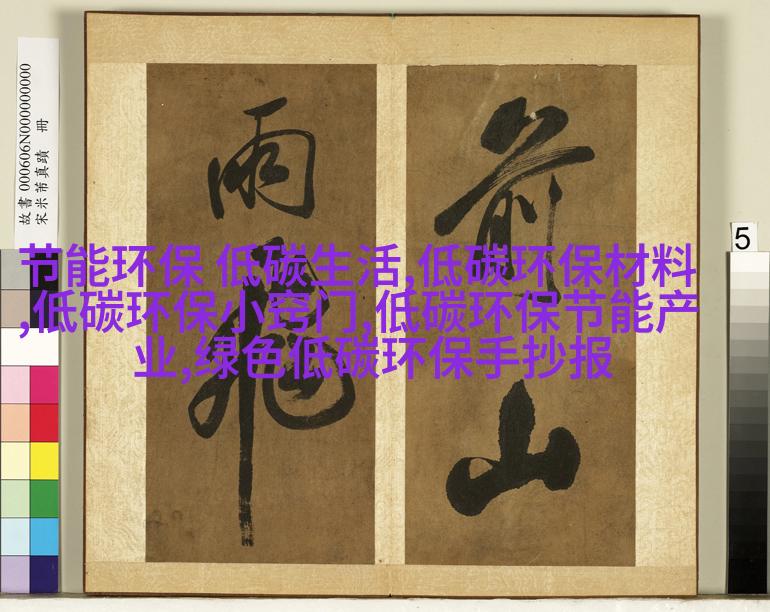 节能环保 低碳生活,低碳环保材料
,低碳环保小窍门,低碳环保节能产
业,绿色低碳环保手抄报
前山
雨飛
故書 000606N000000000
宋米芾真蹟 冊
5